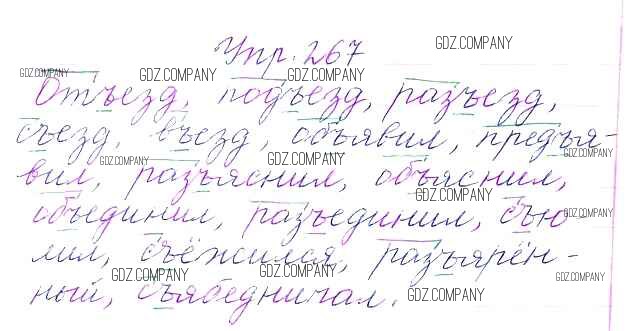 Упр. 267
GDZ.COMPANY
GDZ.COMPANY GDZ.COMPANY GDZ.COMPANY
Отъезд, подъезд, разъезд,
съезд, въезд, объявил, предъя-
GDZ.COMPANY GDZ.COMPANY GDZ.COMPANY
вил, разъяснил, объяснил,
GDZ.COMPANY
объединил, разъединил, съю
GDZ.COMPANY
лил, съёжился, разъярён-
GDZ.COMPANY GDZ.COMPANY GDZ.COMPANY
ный, съябедничал.
GDZ.COMPANY